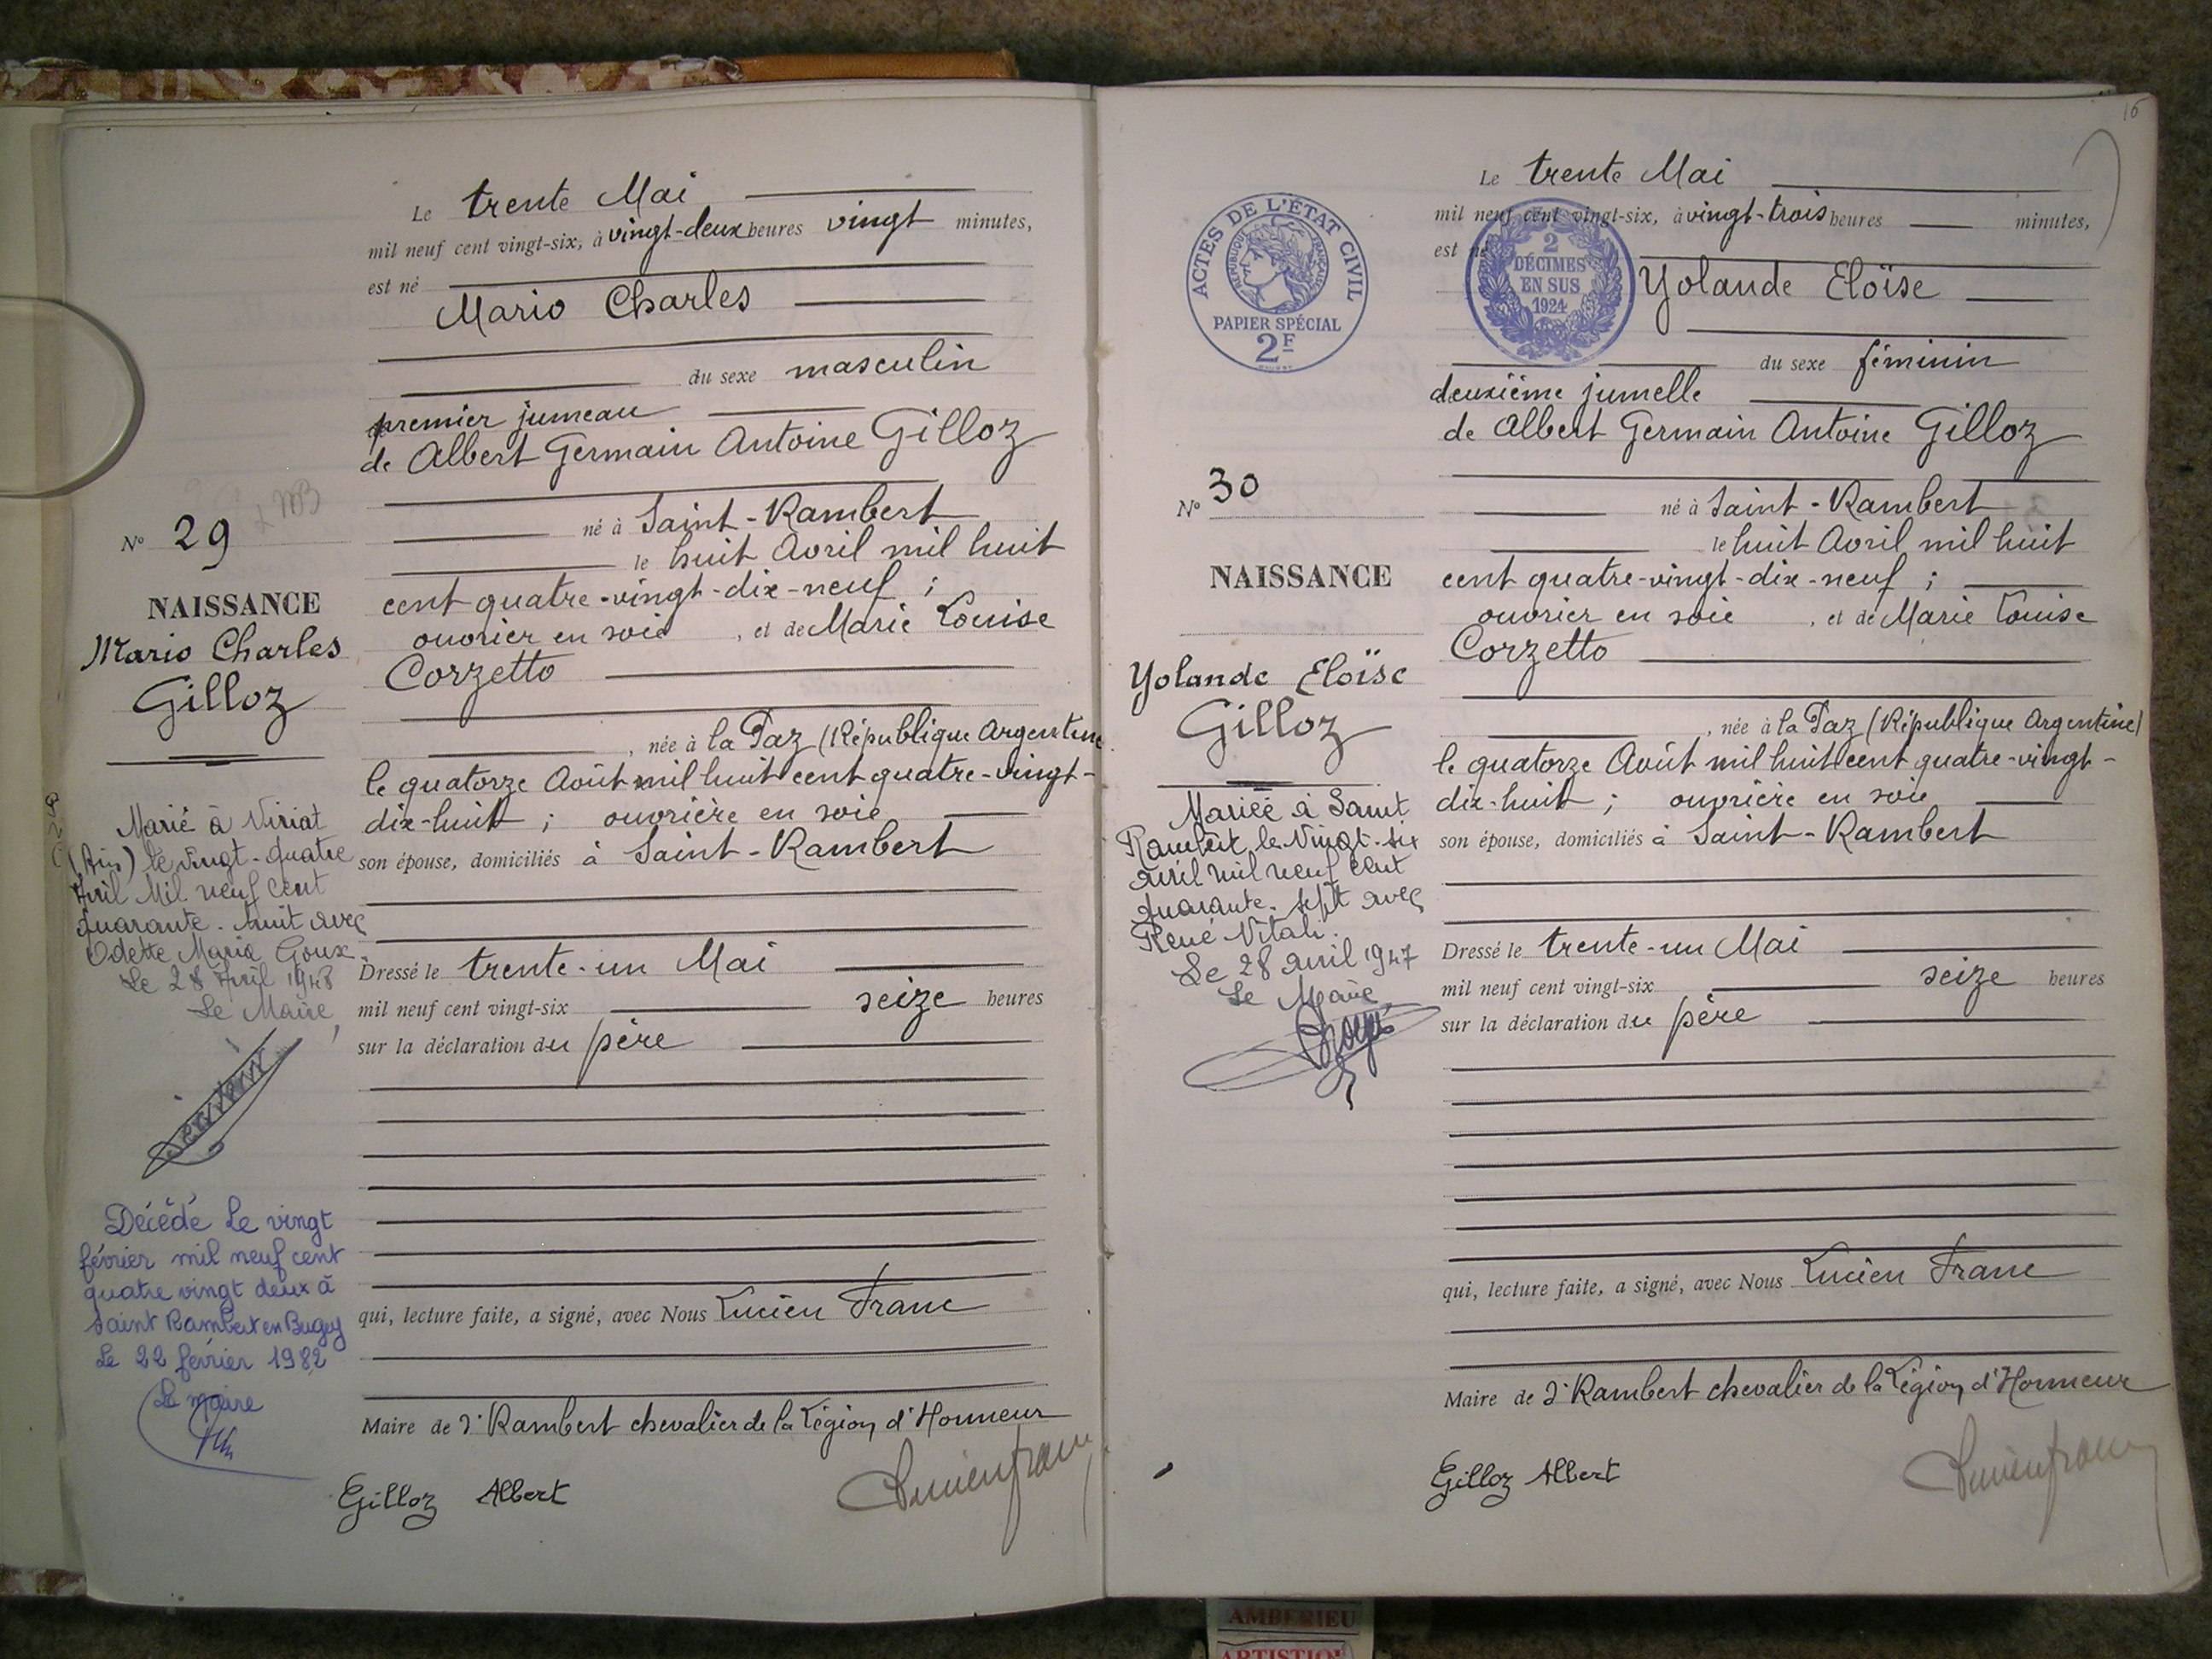 Le trente Mai
mil neuf cent vingt-six, à vingt-deux heures vingt minutes,
est né
Mario Charles
du sexe masculin
premier jumeau
de Albert Germain Antoine Gilloz
né à Saint-Rambert
le huit Avril mil huit
cent quatre-vingt-dix-neuf ;
ouvrier en soie , et de Marie Louise
Corzetto
, née à la Paz (République Argentine
le quatorze Août mil huit cent quatre-vingt-
dix-huit ; ouvrière en soie
son épouse, domiciliés à Saint-Rambert
Dressé le trente-un Mai
mil neuf cent vingt-six seize heures
sur la déclaration du père
qui, lecture faite, a signé, avec Nous Lucien Franc
Maire de St Rambert chevalier de la Légion d'Honneur
Gilloz Albert
Lucien franc
N° 29
NAISSANCE
Mario Charles
Gilloz
Marié à Viriat
(Ain) le vingt-quatre
Avril Mil neuf cent
quarante-huit avec
Odette Maria Goux
Le 28 Avril 1948
Le Maire,
Décédé le vingt
février mil neuf cent
quatre vingt deux à
Saint Rambert en Bugey
Le 22 février 1982
Le maire
16
Le trente Mai
mil neuf cent vingt-six, à vingt-trois heures minutes,
est né
Yolande Eloïse
du sexe féminin
deuxième jumelle
de Albert Germain Antoine Gilloz
né à Saint-Rambert
le huit Avril mil huit
cent quatre-vingt-dix-neuf ;
ouvrier en soie , et de Marie Louise
Corzetto
, née à la Paz (République Argentine)
le quatorze Août mil huit cent quatre-vingt-
dix-huit ; ouvrière en soie
son épouse, domiciliés à Saint-Rambert
Dressé le trente-un Mai
mil neuf cent vingt-six seize heures
sur la déclaration du père
qui, lecture faite, a signé, avec Nous Lucien Franc
Maire de St Rambert chevalier de la Légion d'Honneur
Gilloz Albert
Lucien franc
ACTES DE L'ÉTAT CIVIL
RÉPUBLIQUE FRANÇAISE
PAPIER SPÉCIAL
2F
2
DÉCIMES
EN SUS
1924
N° 30
NAISSANCE
Yolande Eloïse
Gilloz
Mariée à Saint
Rambert le Vingt-six
avril mil neuf cent
quarante-sept avec
René Vitali.
Le 28 avril 1947
Le Maire
AMBERIEU